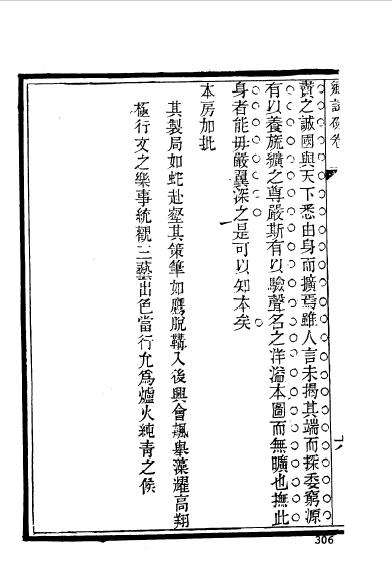 鄉試硃卷
賣之誠國與天下悉由身而擴焉雖人言未揭其端而探委窮源
有以養旒纊之尊嚴斯有以驗聲名之洋溢本圖而無曠也撫此
身者能毋嚴翼深之是可以知本矣
本房加批
其製局如蛇赴壑其策筆如鷹脫韝入後興會飆舉藻耀高翔
極行文之樂事統觀三藝出色當行允為爐火純青之候
306